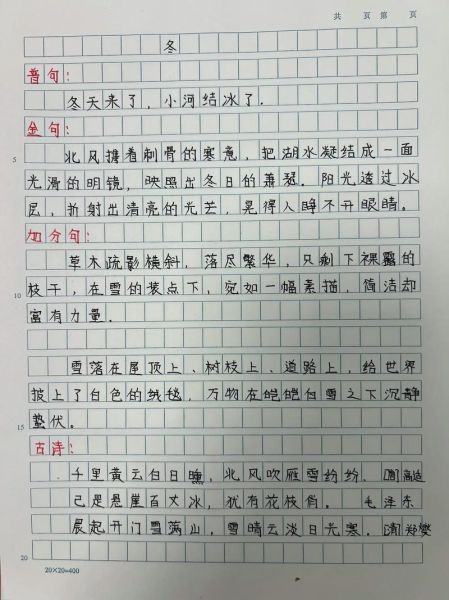 共 页 第 页
冬
普句：
冬天来了，小河结冰了．
金句：
5
北风携着刺骨的寒意，把湖水凝结成一面
光滑的明镜，映照出冬日的萧瑟．阳光透过冰
层，折射出清亮的光芒，晃得人睁不开眼睛。
加分句：
草木疏影横斜，落尽繁华，只剩下裸露的
10
枝干，在雪的装点下，宛如一幅素描，简洁却
富有力量．
雪落在屋顶上、树枝上、道路上，给世界
披上了白色的绒毯，万物在皑皑白雪之下沉静
15
蛰伏。
古诗：
千里黄云白日曛，北风吹雁雪纷纷．[唐]高适
已是悬崖百丈冰，犹有花枝俏。 毛泽东
晨起开门雪满山，雪晴云淡日光寒．[清]郑燮
20
20×20=400